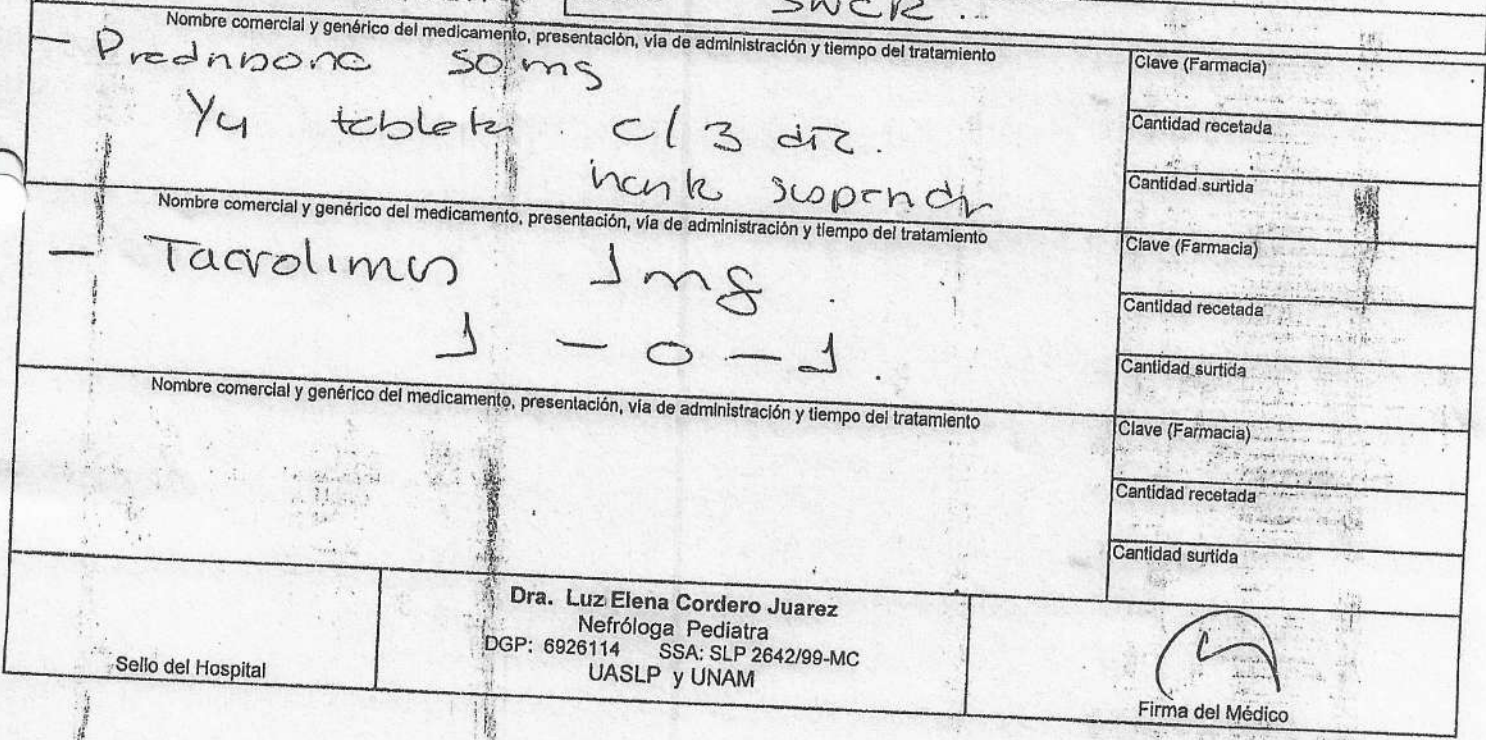 SNCR.
Nombre comercial y genérico del medicamento, presentación, vía de administración y tiempo del tratamiento
Clave (Farmacia)
– Prednisona 50 mg
Cantidad recetada
1/4 tableta c/ 3 día.
Cantidad surtida
suspendr
Nombre comercial y genérico del medicamento, presentación, vía de administración y tiempo del tratamiento
Clave (Farmacia)
– Tacrolimus 1mg.
Cantidad recetada
1 – 0 – 1.
Cantidad surtida
Nombre comercial y genérico del medicamento, presentación, vía de administración y tiempo del tratamiento
Clave (Farmacia)
Cantidad recetada
Cantidad surtida
Sello del Hospital
Dra. Luz Elena Cordero Juarez
Nefróloga Pediatra
DGP: 6926114 SSA: SLP 2642/99-MC
UASLP y UNAM
Firma del Médico